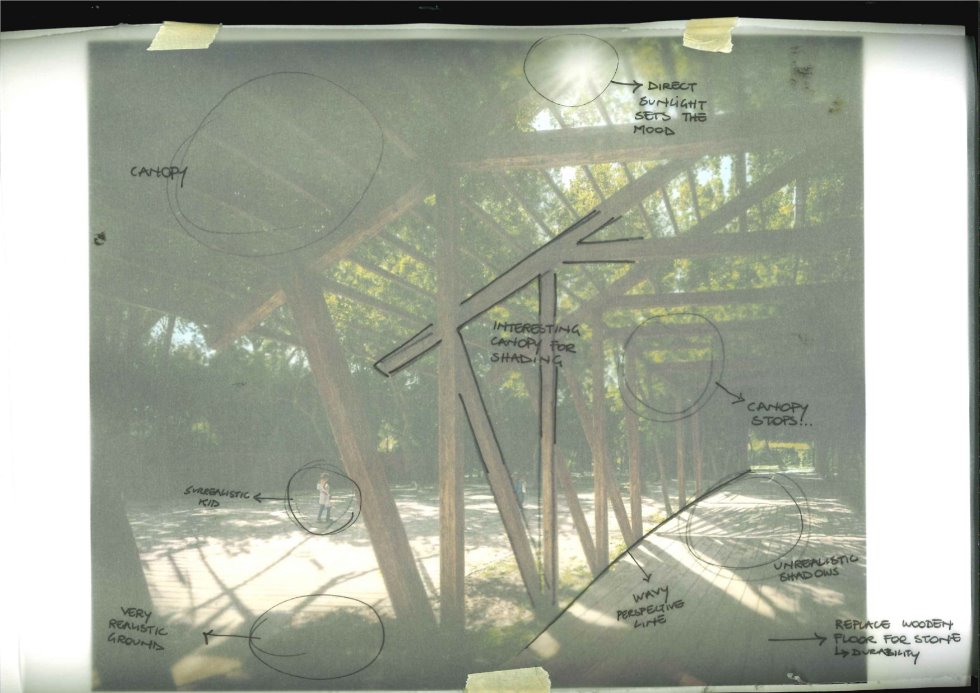 DIRECT
SUNLIGHT
SETS THE
MOOD
CANOPY
INTERESTING
CANOPY FOR
SHADING
CANOPY
STOPS!..
SURREALISTIC
KID
UNREALISTIC
SHADOWS
WAVY
PERSPECTIVE
LINE
VERY
REALISTIC
GROUND
REPLACE WOODEN
FLOOR FOR STONE
↳ DURABILITY